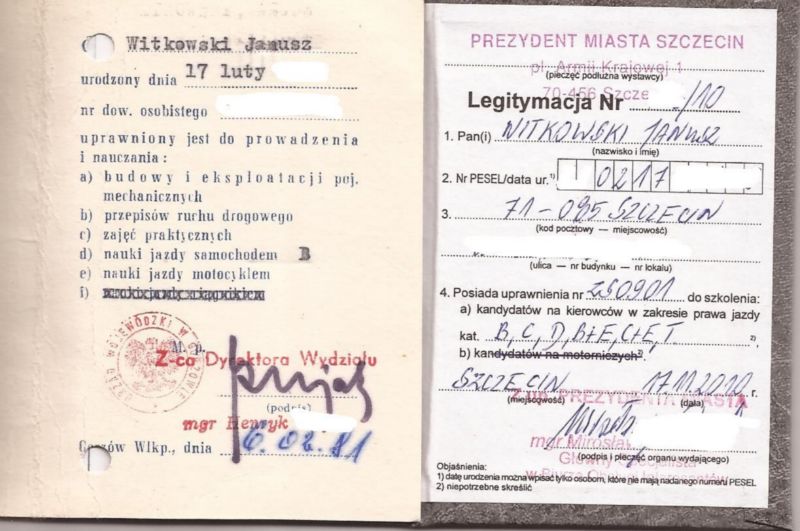 Witkowski Janusz
urodzony dnia 17 luty
nr dow. osobistego
uprawniony jest do prowadzenia
i nauczania :
a) budowy i eksploatacji poj.
mechanicznych
b) przepisów ruchu drogowego
c) zajęć praktycznych
d) nauki jazdy samochodem B
e) nauki jazdy motocyklem
f)
M. p.
Z-ca Dyrektora Wydziału
(podpis)
mgr Henryk
Gorzów Wlkp., dnia 6.02.81
PREZYDENT MIASTA SZCZECIN
pl. Armii Krajowej 1
(pieczęć podłużna wystawcy)
70-456 Szcze
Legitymacja Nr /10
1. Pan(i) WITKOWSKI JANUSZ
(nazwisko i imię)
2. Nr PESEL/data ur.1) 0217
3. 71-085 SZCZECIN
(kod pocztowy — miejscowość)
(ulica — nr budynku — nr lokalu)
4. Posiada uprawnienia nr ZS0901 do szkolenia:
a) kandydatów na kierowców w zakresie prawa jazdy
kat. B, C, D, B+E, C+E, T
b) kandydatów na motorniczych2)
SZCZECIN 17.11.2010 r.
PREZYDENTA MIASTA
(miejscowość) (data)
mgr Mirosław
(podpis i pieczęć organu wydającego)
Główny Specjalista
w Biurze
Objaśnienia:
1) datę urodzenia można wpisać tylko osobom, które nie mają nadanego numeru PESEL
2) niepotrzebne skreślić